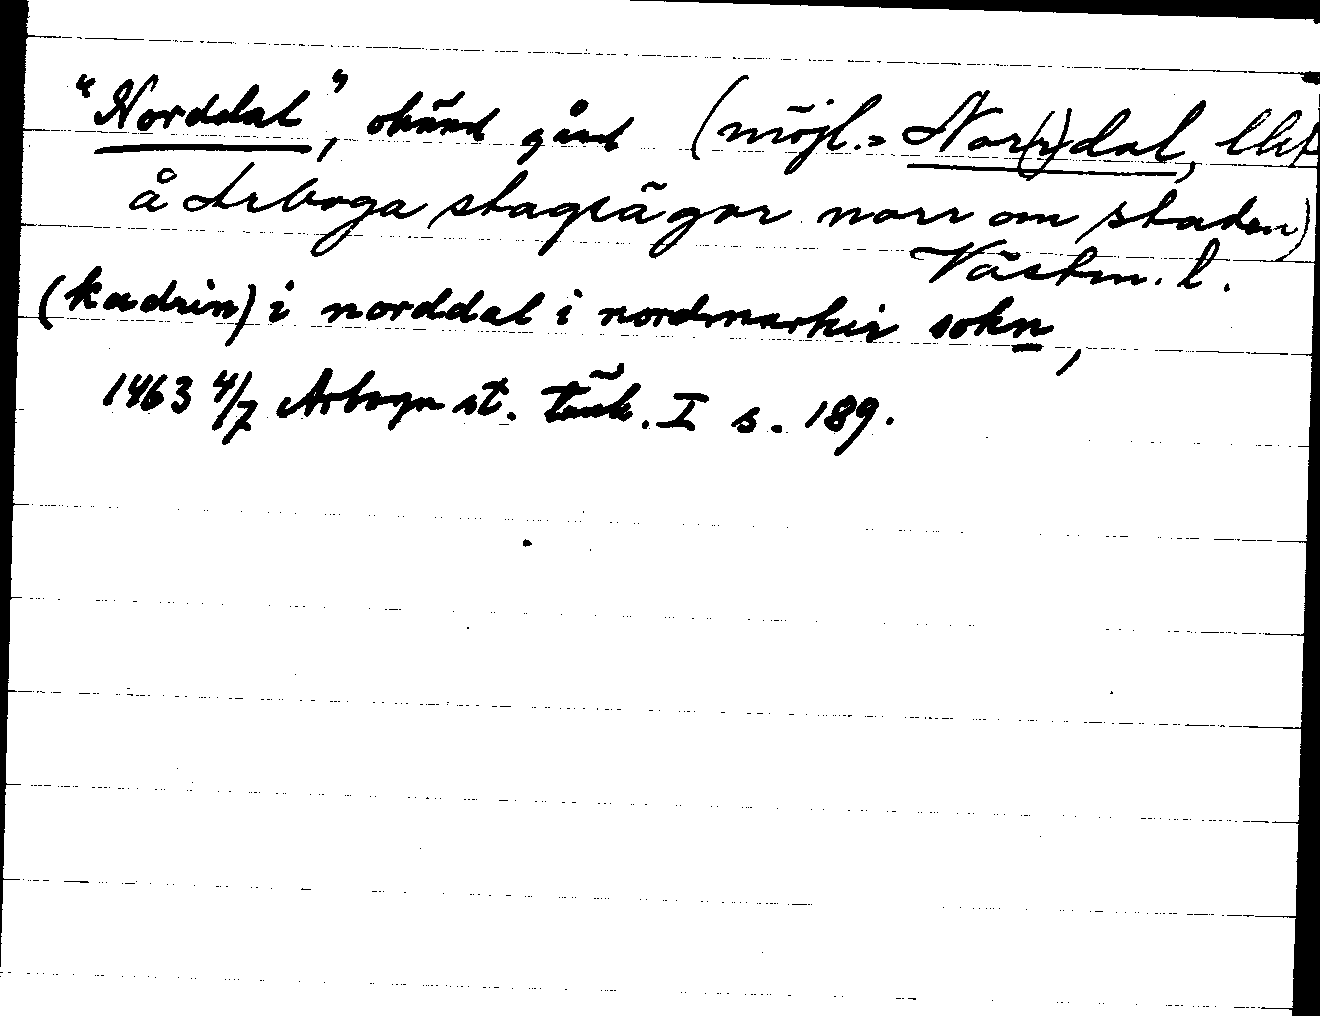 "Norddal", okänd gård (möjl. = Nor(r)dal, lht
å Arboga stagsägor norr om staden)
Västm. l.
(kadrin) i norddal i nordmarkis sokn,
1463 4/7 Arboga st. tänk. I s. 189.